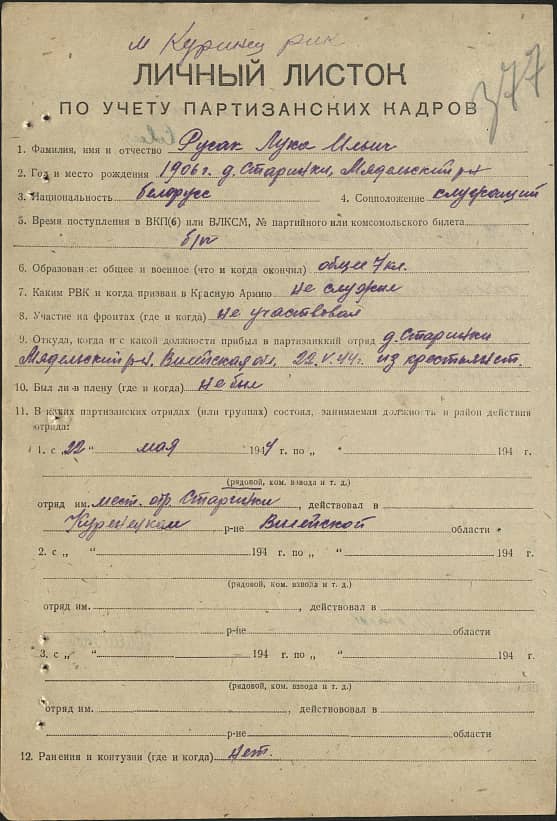 м Куринец рик
377
ЛИЧНЫЙ ЛИСТОК
ПО УЧЕТУ ПАРТИЗАНСКИХ КАДРОВ
1. Фамилия, имя и отчество Русак Лука Ильич
2. Год и место рождения 1906 г. д. Старинки, Мядельский р-н
3. Национальность белорусс 4. Соцположение служащий
5. Время поступления в ВКП(б) или ВЛКСМ, № партийного или комсомольского билета
б/п
6. Образование: общее и военное (что и когда окончил) общее 7 кл.
7. Каким РВК и когда призван в Красную Армию не служил
8. Участие на фронтах (где и когда) не участвовал
9. Откуда, когда и с какой должности прибыл в партизанский отряд д. Старинки
Мядельский р-н, Вилейская обл, 22.V.44г. из крестьянст.
10. Был ли в плену (где и когда) не был
11. В каких партизанских отрядах (или группах) состоял, занимаемая должность и район действия
отряда:
1. с „22" мая 1944 г. по „ " 194 г.
(рядовой, ком. взвода и т. д.)
отряд им. мест. отр. Старинки, действовал в
Куренецком р-не Вилейской области
2. с „ " 194 г. по „ " 194 г.
(рядовой, ком. взвода и т. д.)
отряд им. , действовал в
р-не области
3. с „ " 194 г. по „ " 194 г.
(рядовой, ком. взвода и т. д.)
отряд им. , действовал в
р-не области
12. Ранения и контузии (где и когда) нет.